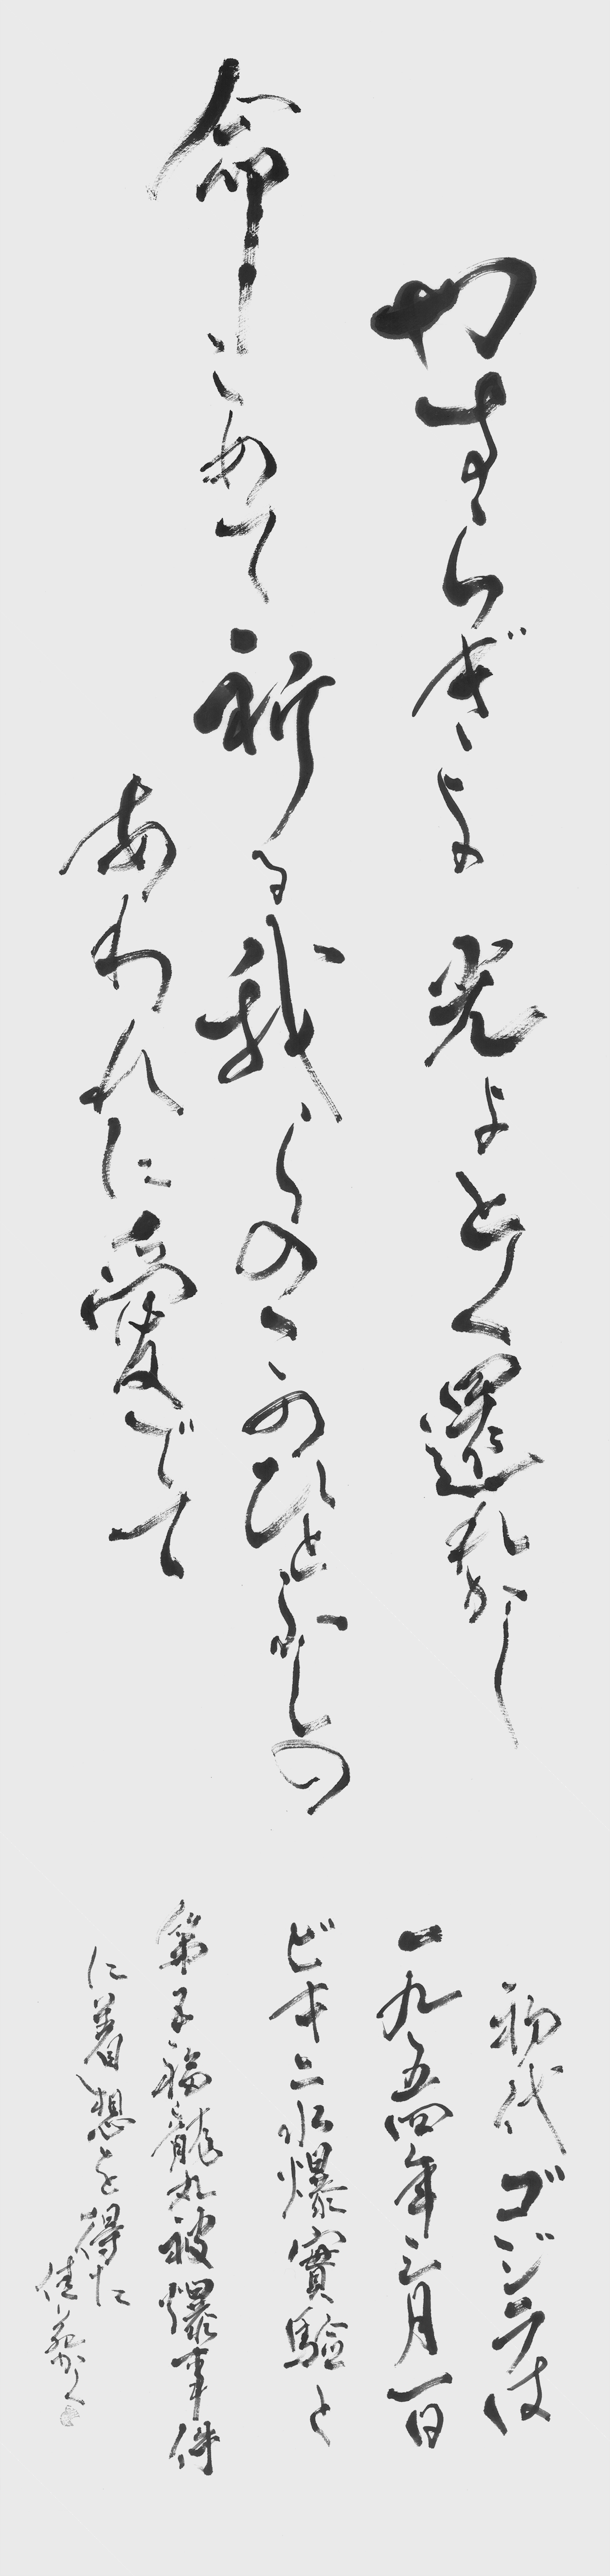 やすらぎよ 光よ とく還れかし
命こめて 祈る我らの このひとふしの
あわれに愛でて
初代ゴジラは
一九五四年三月一日
ビキニ水爆實驗と
第五福龍丸被爆事件
に着想を得た